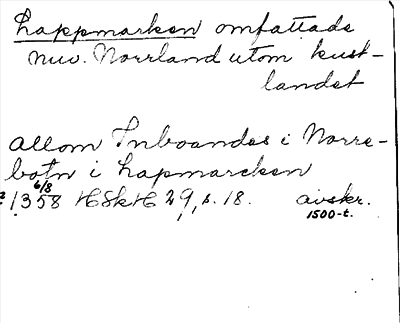 Lappmarken omfattade
nuv. Norrland utom kust-
landet
allom Inboandes i Norre-
botn i Lapmarcken
6/8
1358 HSkH 29, s. 18. avskr.
1500-t.